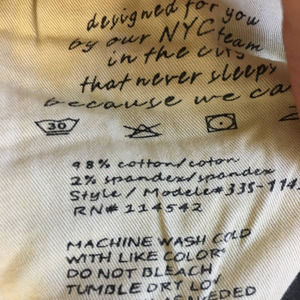 designed for you
by our NYC team
in the city
that never sleeps
because we ca
30
98% cotton/coton
2% spandex/spandex
Style / Modele#335-114
RN# 114542
MACHINE WASH COLD
WITH LIKE COLOR
DO NOT BLEACH
TUMBLE DRY LO
NEEDED